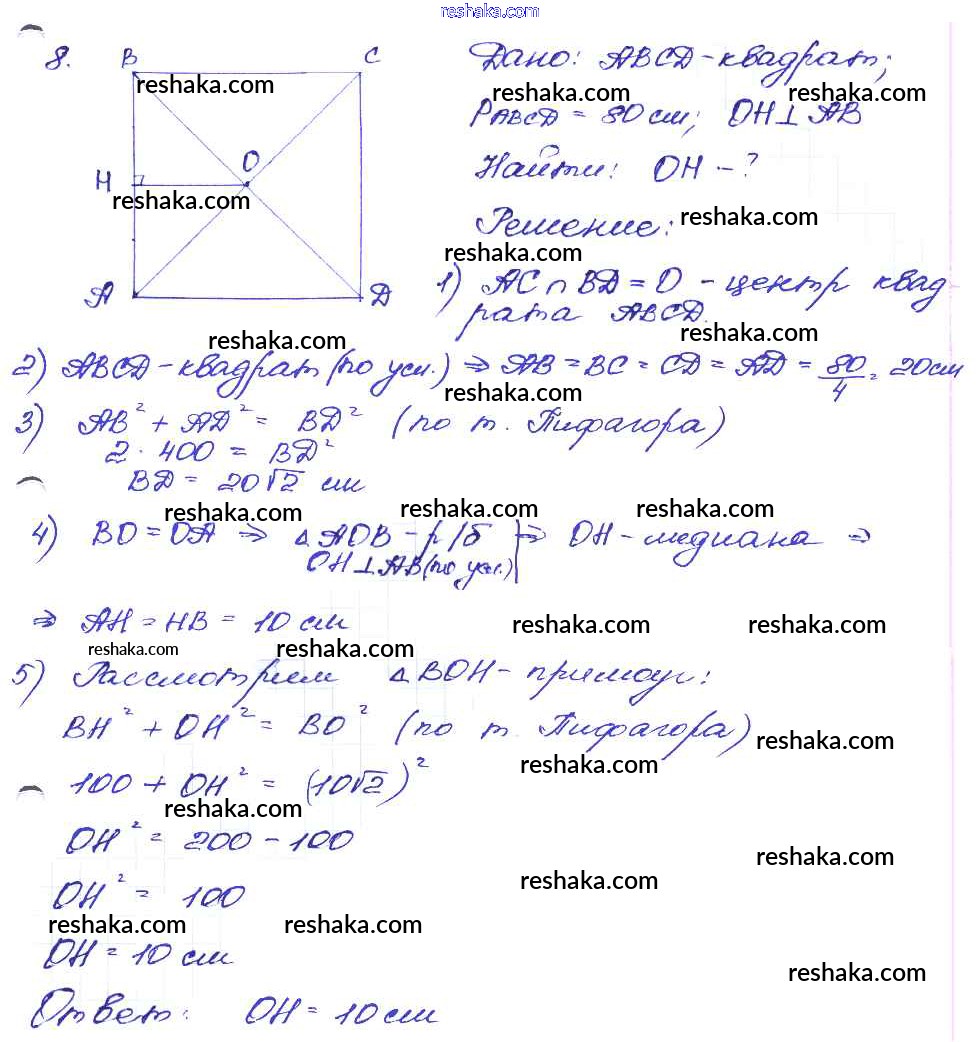 reshaka.com
8. B C
Дано: ABCD - квадрат;
reshaka.com reshaka.com reshaka.com
P ABCD = 80 см; OH ⊥ AB
O
H
Найти: OH - ?
reshaka.com
Решение: reshaka.com
reshaka.com
A D
1) AC ∩ BD = O - центр квад
рата ABCD.
reshaka.com reshaka.com
2) ABCD - квадрат (по усл.) ⇒ AB = BC = CD = AD = 80/4 = 20 см
reshaka.com
3) AB² + AD² = BD² (по т. Пифагора)
2 · 400 = BD²
BD = 20√2 см
reshaka.com reshaka.com reshaka.com
4) BO = OA ⇒ △ AOB - р/б | ⇒ OH - медиана ⇒
OH ⊥ AB (по усл.)
⇒ AH = HB = 10 см
reshaka.com reshaka.com
reshaka.com reshaka.com
5) Рассмотрим △ BOH - прямоуг:
BH² + OH² = BO² (по т. Пифагора)
reshaka.com
reshaka.com
100 + OH² = (10√2)²
reshaka.com
OH² = 200 - 100
reshaka.com
reshaka.com
OH² = 100
reshaka.com reshaka.com
OH = 10 см
reshaka.com
Ответ: OH = 10 см